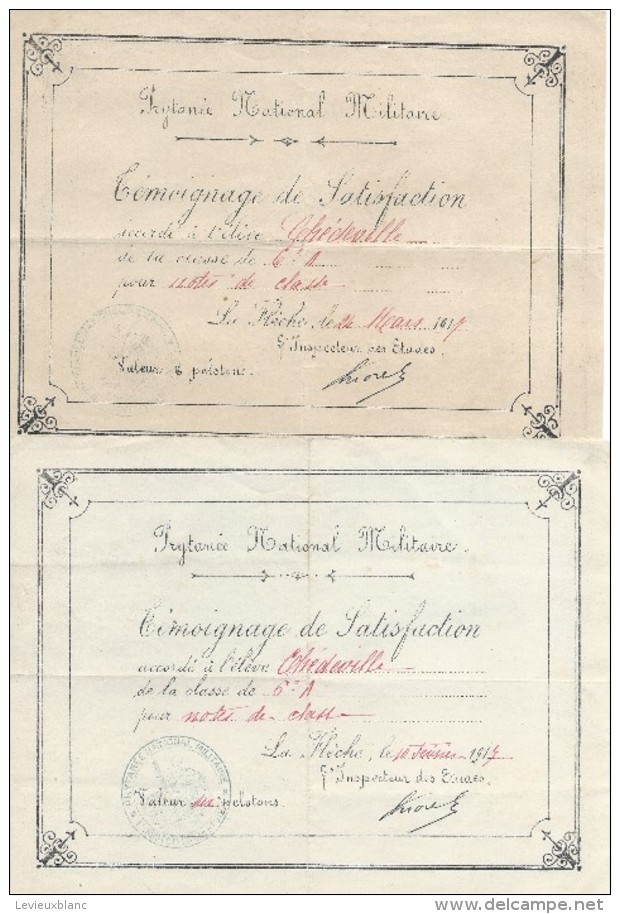 Prytanée National Militaire
Témoignage de Satisfaction
accordé à l'élève Chédeville
de la classe de 6e A
pour notes de classe
La Flèche, le 24 Mars 1917
L'Inspecteur des Etudes.
Valeur 6 pelotons.
Prytanée National Militaire.
Témoignage de Satisfaction
accordé à l'élève Chédeville
de la classe de 6e A
pour notes de classe
La Flèche, le 10 Février 1917
L'Inspecteur des Etudes.
PRYTANÉE NATIONAL MILITAIRE
Valeur six pelotons.
Levieuxblanc
delcampe.net